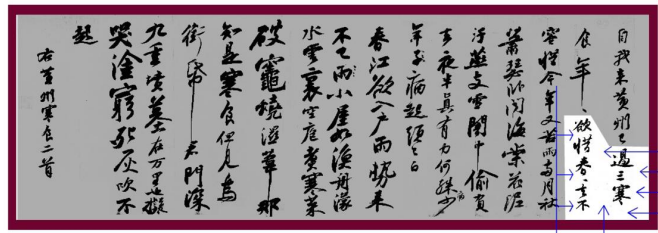 自我來黃州已過三寒
食年々欲惜春々去不
容惜今年又苦雨兩月秋
蕭瑟臥聞海棠花泥
汙燕支雪闇中偷負
去夜半真有力何殊少
年子病起頭已白
春江欲入戶雨勢來
不已雨小屋如漁舟濛
水雲裏空庖煮寒菜
破竈燒濕葦那
知是寒食但見烏
銜帋君門深
九重墳墓在万里也擬
哭塗窮死灰吹不
起
右黃州寒食二首